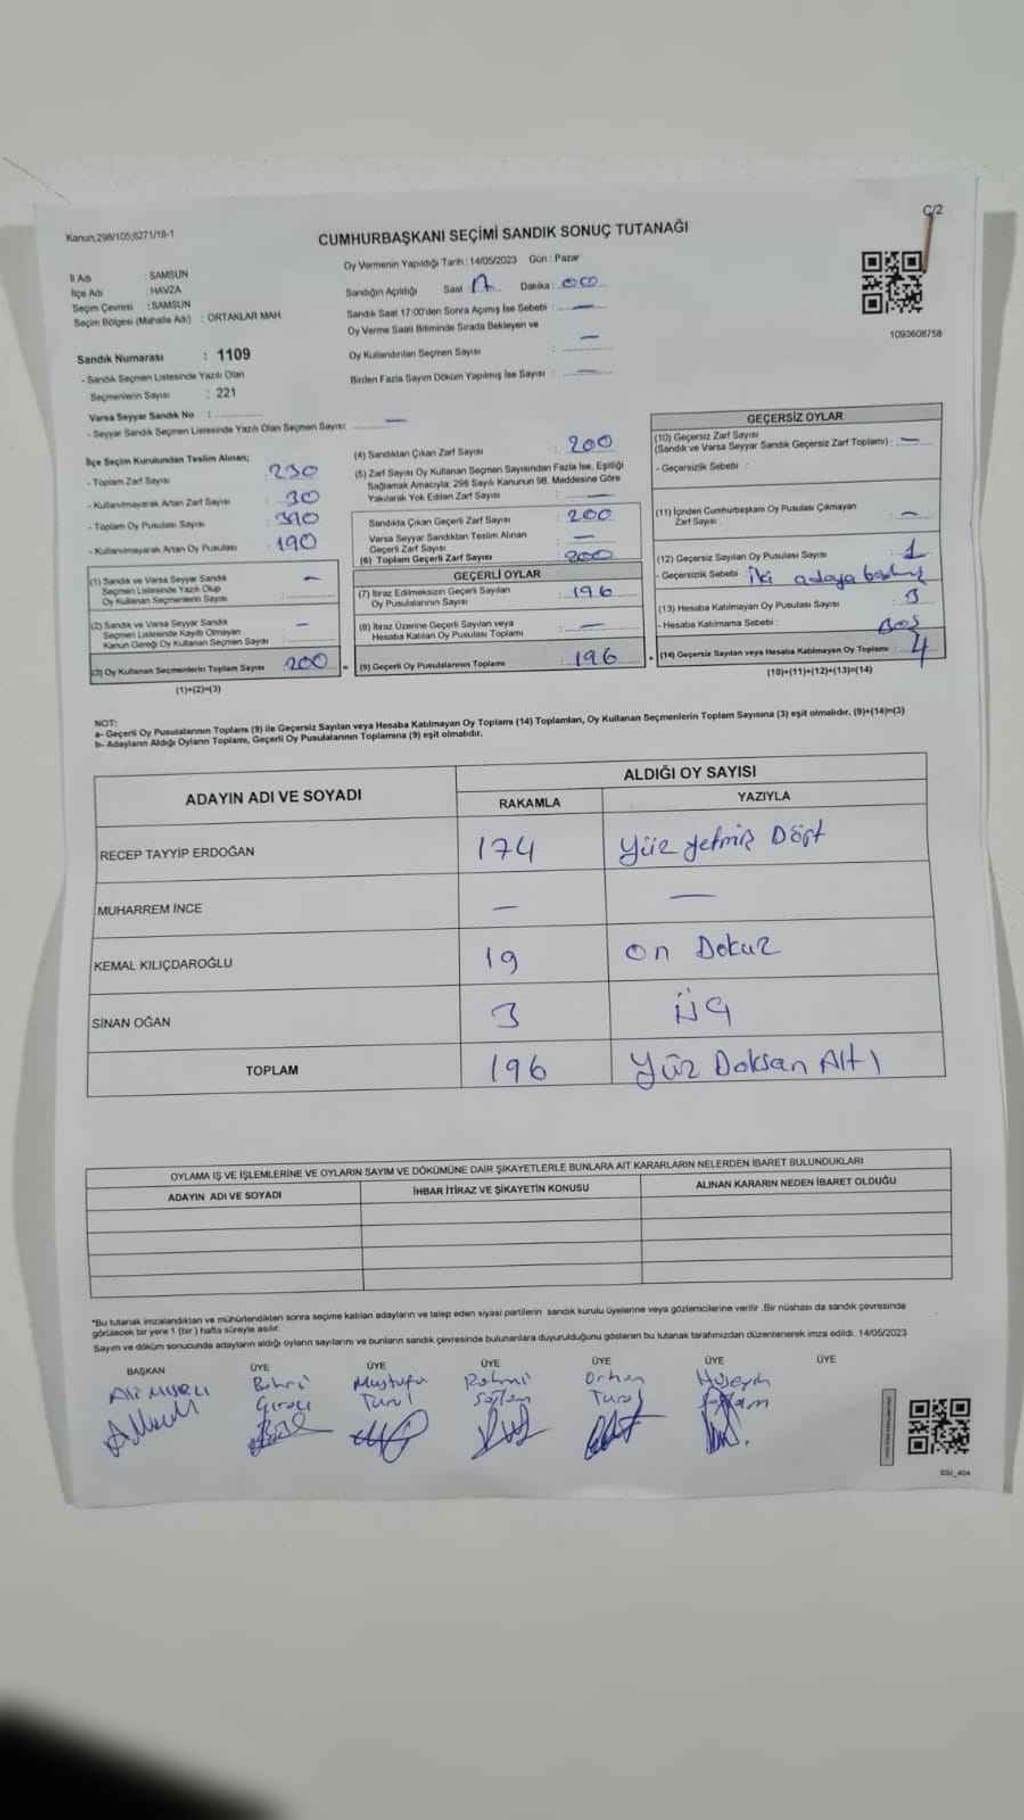 Kanun:298/105;6271/18-1
C/2
CUMHURBAŞKANI SEÇİMİ SANDIK SONUÇ TUTANAĞI
İl Adı : SAMSUN
İlçe Adı : HAVZA
Seçim Çevresi : SAMSUN
Seçim Bölgesi (Mahalle Adı) : ORTAKLAR MAH
Sandık Numarası : 1109
- Sandık Seçmen Listesinde Yazılı Olan
Seçmenlerin Sayısı : 221
Varsa Seyyar Sandık No :
- Seyyar Sandık Seçmen Listesinde Yazılı Olan Seçmen Sayısı: —
Oy Vermenin Yapıldığı Tarih : 14/05/2023 Gün : Pazar
Sandığın Açıldığı Saat Dakika :
Sandık Saat 17:00'den Sonra Açımış İse Sebebi : —
Oy Verme Saati Bitiminde Sırada Bekleyen ve
Oy Kullandırılan Seçmen Sayısı : —
Birden Fazla Sayım Döküm Yapılmış İse Sayısı : —
1093608758
İlçe Seçim Kurulundan Teslim Alınan;
- Toplam Zarf Sayısı : 230
- Kullanılmayarak Artan Zarf Sayısı : 30
- Toplam Oy Pusulası Sayısı : 390
- Kullanılmayarak Artan Oy Pusulası : 190
(1) Sandık ve Varsa Seyyar Sandık
Seçmen Listesinde Yazılı Olup
Oy Kullanan Seçmenlerin Sayısı : —
(2) Sandık ve Varsa Seyyar Sandık
Seçmen Listesinde Kayıtlı Olmayan
Kanun Gereği Oy Kullanan Seçmen Sayısı : —
(3) Oy Kullanan Seçmenlerin Toplam Sayısı : 200
(1)+(2)=(3)
(4) Sandıktan Çıkan Zarf Sayısı : 200
(5) Zarf Sayısı Oy Kullanan Seçmen Sayısından Fazla İse, Eşitliği
Sağlamak Amacıyla; 298 Sayılı Kanunun 98. Maddesine Göre
Yakılarak Yok Edilen Zarf Sayısı : —
Sandıkta Çıkan Geçerli Zarf Sayısı : 200
Varsa Seyyar Sandıktan Teslim Alınan
Geçerli Zarf Sayısı : —
(6) Toplam Geçerli Zarf Sayısı : 200
GEÇERLİ OYLAR
(7) İtiraz Edilmeksizin Geçerli Sayılan
Oy Pusulalarının Sayısı : 196
(8) İtiraz Üzerine Geçerli Sayılan veya
Hesaba Katılan Oy Pusulası Toplamı : —
(9) Geçerli Oy Pusulalarının Toplamı : 196
GEÇERSİZ OYLAR
(10) Geçersiz Zarf Sayısı
(Sandık ve Varsa Seyyar Sandık Geçersiz Zarf Toplamı) : —
- Geçersizlik Sebebi :
(11) İçinden Cumhurbaşkanı Oy Pusulası Çıkmayan
Zarf Sayısı : —
(12) Geçersiz Sayılan Oy Pusulası Sayısı : 1
- Geçersizlik Sebebi : iki adaya
(13) Hesaba Katılmayan Oy Pusulası Sayısı : 3
- Hesaba Katılmama Sebebi : Boş
(14) Geçersiz Sayılan veya Hesaba Katılmayan Oy Toplamı : 4
(10)+(11)+(12)+(13)=(14)
NOT:
a- Geçerli Oy Pusulalarının Toplamı (9) ile Geçersiz Sayılan veya Hesaba Katılmayan Oy Toplamı (14) Toplamları, Oy Kullanan Seçmenlerin Toplam Sayısına (3) eşit olmalıdır. (9)+(14)=(3)
b- Adayların Aldığı Oyların Toplamı, Geçerli Oy Pusulalarının Toplamına (9) eşit olmalıdır.
ADAYIN ADI VE SOYADI
ALDIĞI OY SAYISI
RAKAMLA YAZIYLA
RECEP TAYYİP ERDOĞAN 174 Yüz yetmiş Dört
MUHARREM İNCE — —
KEMAL KILIÇDAROĞLU 19 on Dokuz
SİNAN OĞAN 3 ÜÇ
TOPLAM 196 Yüz Doksan Altı
OYLAMA İŞ VE İŞLEMLERİNE VE OYLARIN SAYIM VE DÖKÜMÜNE DAİR ŞİKAYETLERLE BUNLARA AİT KARARLARIN NELERDEN İBARET BULUNDUKLARI
ADAYIN ADI VE SOYADI İHBAR İTİRAZ VE ŞİKAYETİN KONUSU ALINAN KARARIN NEDEN İBARET OLDUĞU
"Bu tutanak imzalandıktan ve mühürlendikten sonra seçime katılan adayların ve talep eden siyasi partilerin sandık kurulu üyelerine veya gözlemcilerine verilir. Bir nüshası da sandık çevresinde
görülecek bir yere 1 (bir) hafta süreyle asılır.
Sayım ve döküm sonucunda adayların aldığı oyların sayılarını ve bunların sandık çevresinde bulunanlara duyurulduğunu gösteren bu tutanak tarafımızdan düzenlenerek imza edildi. 14/05/2023
BAŞKAN ÜYE ÜYE ÜYE ÜYE ÜYE ÜYE
Mustafa Rahmi Orhan Hüseyin